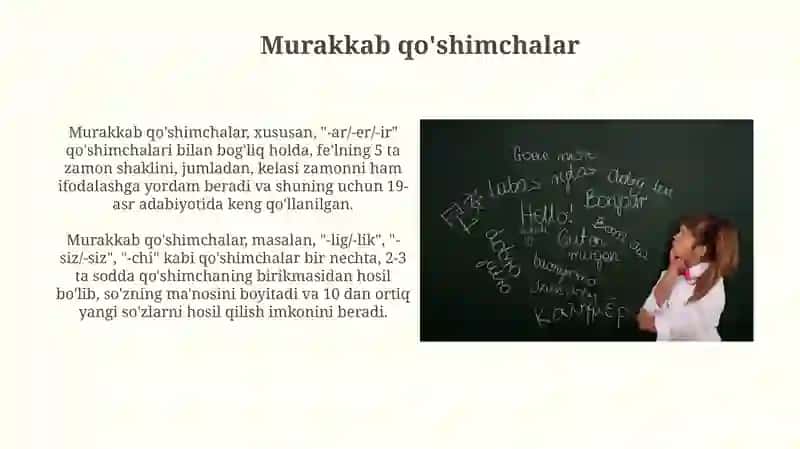 Murakkab qo'shimchalar
Murakkab qo'shimchalar, xususan, "-ar/-er/-ir"
qo'shimchalari bilan bog'liq holda, fe'lning 5 ta
zamon shaklini, jumladan, kelasi zamonni ham
ifodalashga yordam beradi va shuning uchun 19-
asr adabiyotida keng qo'llanilgan.
Murakkab qo'shimchalar, masalan, "-lig/-lik", "-
siz/-siz", "-chi" kabi qo'shimchalar bir nechta, 2-3
ta sodda qo'shimchaning birikmasidan hosil
bo'lib, so'zning ma'nosini boyitadi va 10 dan ortiq
yangi so'zlarni hosil qilish imkonini beradi.
Labas
Bonjour
Hello!
Guten
morgen